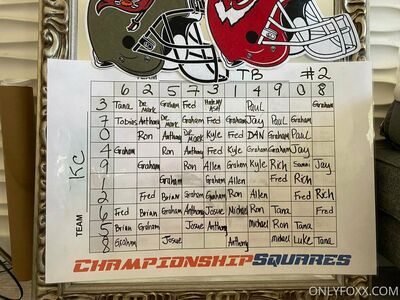 TEAM TB #2
6 2 5 7 3 1 4 9 0 8
3 Tana De Mark Graham Fred Paul Graham
7 Tobias Anthony De Mark Graham Fred Graham Jay Paul Graham
0 Ron Anthony De Mark Kyle Fred DAN Graham Paul
4 Graham Ron Anthony Fred Kyle Graham Graham Jay
9 Graham Ron Allen Graham Kyle Rich Jay
1 Graham Graham Allen Fred Rich
2 Fred Brian Graham Graham Ron Allen Fred Rich
6 Fred Brian Graham Anthony Josue Michael Ron Tana Fred
5 Brian Graham Josue Anthony Michael Ron Tana
8 Graham Josue Anthony Michael Luke Tana
TEAM KC
CHAMPIONSHIP SQUARES
ONLYFOXX.COM